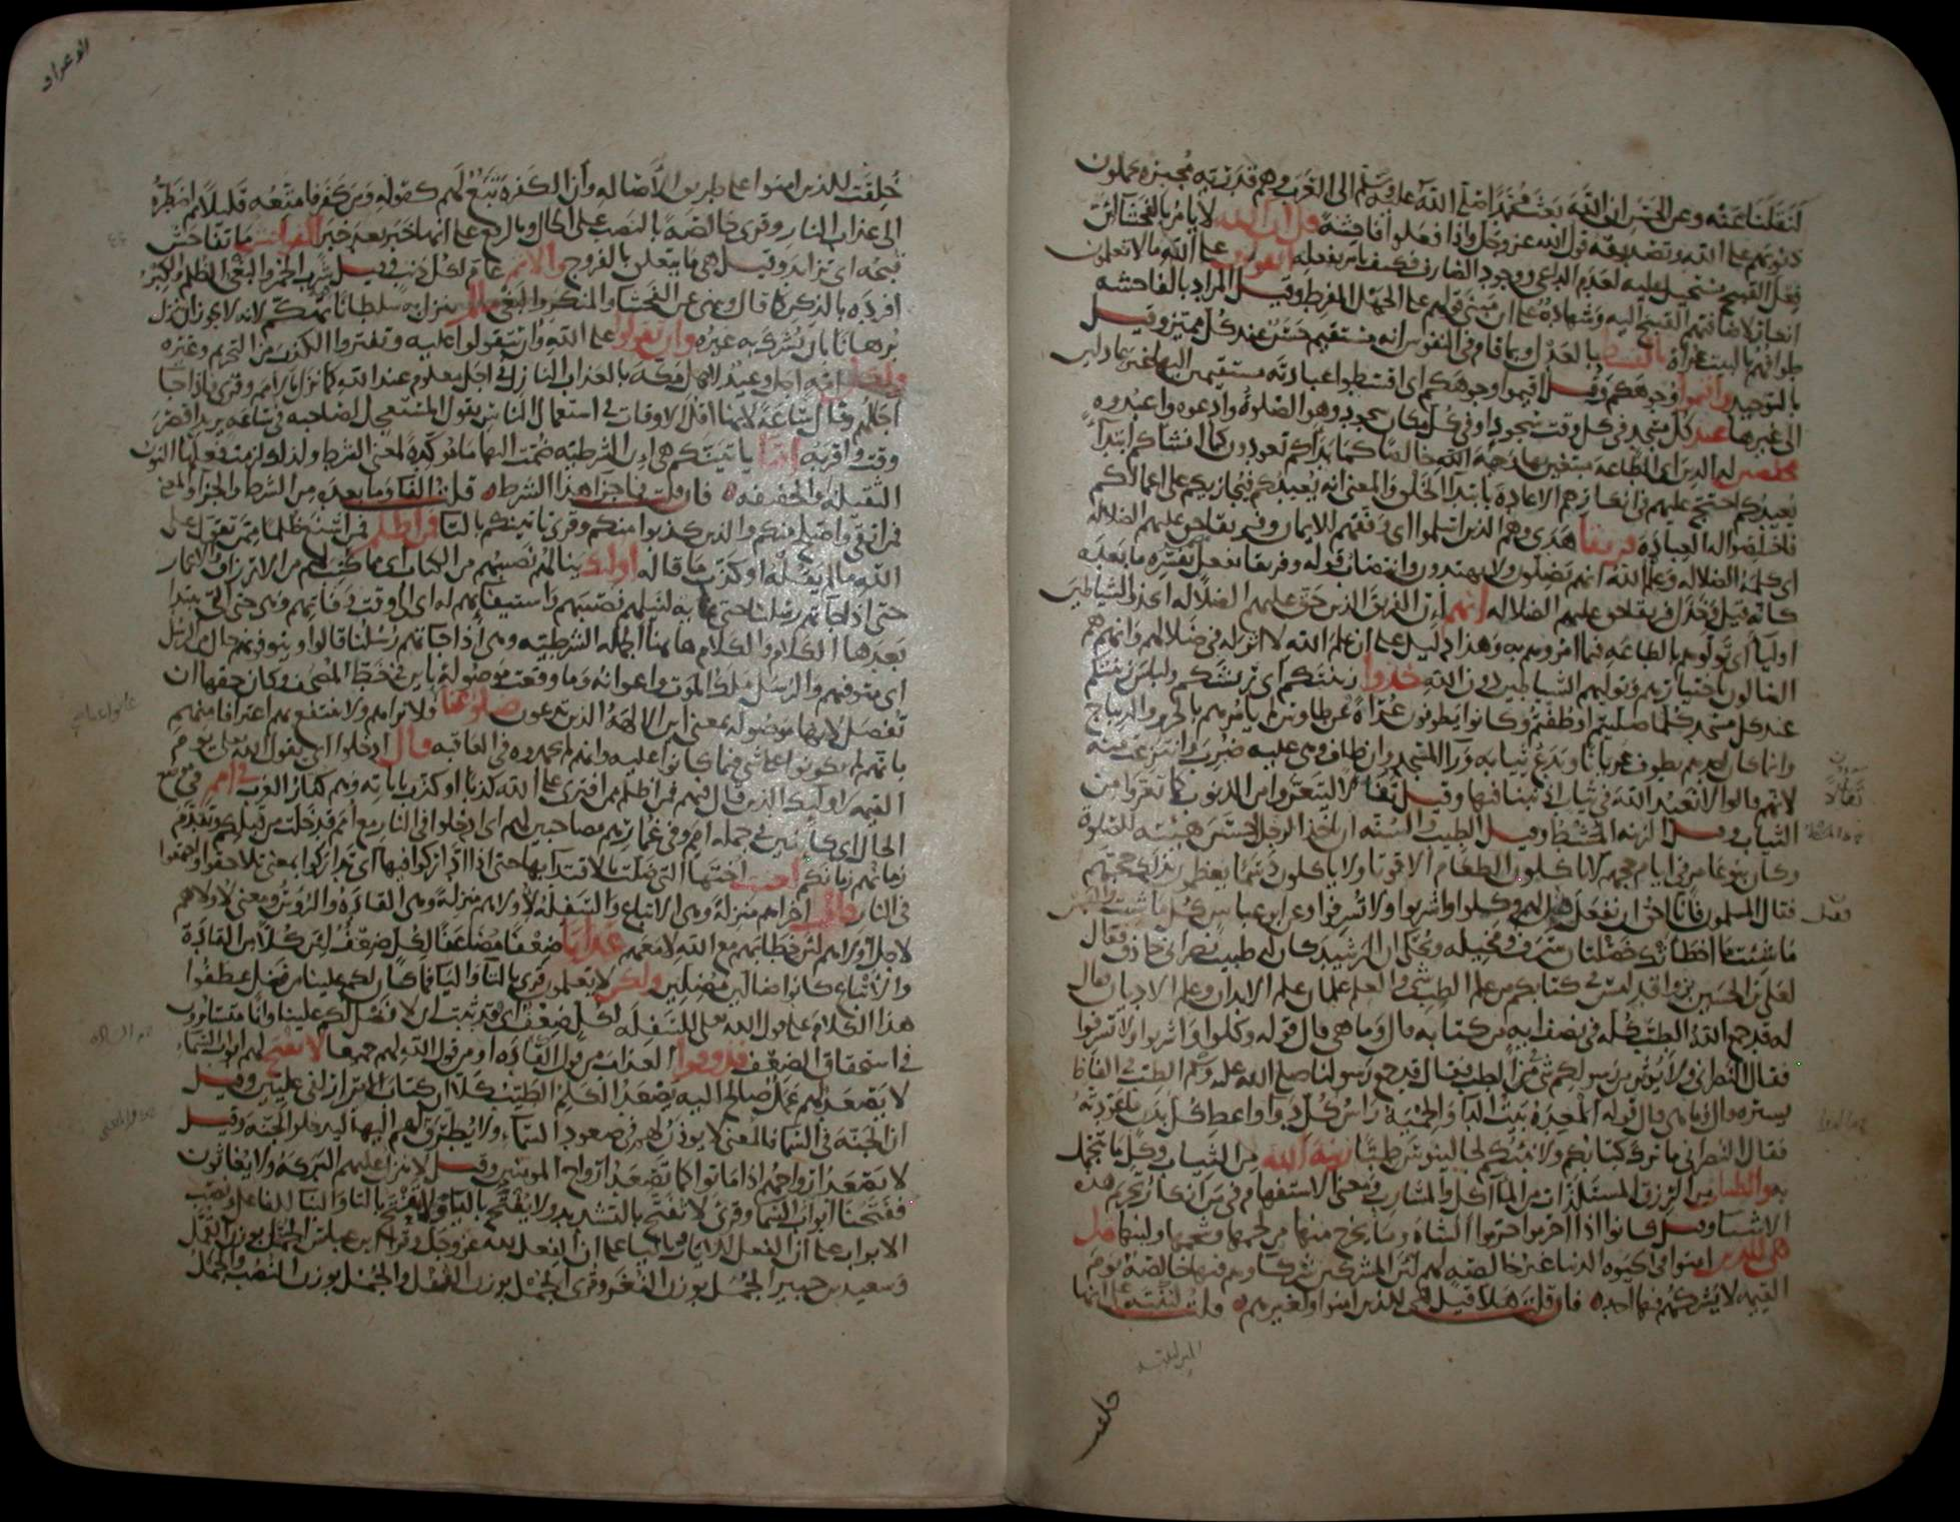 لنقلنا عنه وعن الحسن ان الله بعث محمدا صلى الله عليه وسلم الى العرب وهم قدرية مجبرة يحملون
ذنوبهم على الله وتصديقه قول الله عز وجل واذا فعلوا فاحشة قل ان الله لا يامر بالفحشا لان
فعل القبيح مستحيل عليه لعدم الداعي ووجود الصارف فكيف يامر بفعله اتقولون على الله ما لا تعلمون
انكار لاضافتهم القبيح اليه وشهادة على ان مبنى قولهم على الجهل المفرط وقيل المراد بالفاحشه
طوافهم بالبيت عراة بالقسط بالعدل وبما قام في النفوس انه مستقيم حسن عند كل مميز وقيل
بالتوحيد واقيموا وجوهكم وقل اقيموا وجوهكم اي اقصدوا عبادته مستقيمين اليها غير عادلين
الى غيرها عند كل مسجد في كل وقت سجود او في كل مكان سجود وهو الصلوة وادعوه واعبدوه
مخلصين له الدين اي الطاعه مبتغين بها وجه الله خالصا كما بداكم تعودون كما انشاكم ابتدا
يعيدكم احتج عليهم في انكارهم الاعادة بابتدا الخلق والمعنى انه يعيدكم فيجازيكم على اعمالكم
فاخلصوا له العبادة فريقا هدى وهم الذين اسلموا اي وفقهم للايمان وفريقا حق عليهم الضلاله
اي كلمة الضلاله وعلم الله انهم يضلون ولا يهتدون وانتصاب قوله وفريقا بفعل يفسره ما بعده
كانه قيل وخذل فريقا حق عليهم الضلاله انهم ان الفريق الذين حق عليهم الضلاله اتخذوا الشياطين
اوليا اي تولوهم بالطاعه فيما امروهم به وهذا دليل على ان علم الله لا اثر له في ضلالهم وانهم هم
الضالون باختيارهم وتوليهم الشياطين دون الله خذوا زينتكم اي ريشكم ولباس زينتكم
عند كل مسجد كلما صليتم او طفتم وكانوا يطوفون عراة وعن طاوس لم يامرهم بالحرير والديباج
وانما كان احدهم يطوف عريانا ويدع ثيابه ورا المسجد وان طاف وهي عليه ضرب وانتزعت منه
لانهم قالوا لا نعبد الله في ثياب اذنبنا فيها وقيل تفاؤلا ليتعروا من الذنوب كما تعروا من
الثياب وقيل الزينه المشط وقيل الطيب والسنه ان ياخذ الرجل احسن هيئته للصلوة
وكان بنو عامر في ايام حجهم لا ياكلون الطعام الا قوتا ولا ياكلون دسما يعظمون بذلك حجتهم
فقال المسلمون فانا احق ان نفعل فقيل لهم وكلوا واشربوا ولا تسرفوا وعن ابن عباس كل ما شيت والبس
ما شيت ما اخطاتك خصلتان سرف ومخيله ويحكى ان الرشيد كان له طبيب نصراني حاذق فقال
لعلي بن الحسين بن واقد ليس في كتابكم من علم الطب شي والعلم علمان علم الابدان وعلم الاديان فقال
له قد جمع الله الطب كله في نصف ايه من كتابه قال وما هي قال قوله وكلوا واشربوا ولا تسرفوا
فقال النصراني ولا يؤثر من رسولكم شي في الطب فقال قد جمع رسولنا صلى الله عليه وسلم الطب في الفاظ
يسيره قال وما هي قال قوله المعدة بيت الدا والحمية راس كل دوا واعط كل بدن ما عودته
فقال النصراني ما ترك كتابكم ولا نبيكم لجالينوس طبا زينة الله من الثياب وكل ما يتجمل
به والطيبات من الرزق المستلذات من الماكل والمشارب ومعنى الاستفهام في من انكار تحريم هذه
الاشيا وقيل كانوا اذا احرموا حرموا الشاه وما يخرج منها من لحمها وشحمها ولبنها قل
هي للذين امنوا في الحيوه الدنيا غير خالصه لهم لان المشركين شركاوهم فيها خالصة يوم
القيمه لا يشركهم فيها احد فان قلت هلا قيل هي للذين امنوا ولغيرهم قلت لينبه على انها
خلقت
الاعراف
خلقت للذين امنوا على طريق الاصاله وان الكفره تبع لهم كقوله ومن كفر فامتعه قليلا ثم اضطره
الى عذاب النار وقرى خالصه بالنصب على الحال وبالرفع على انها خبر بعد خبر الفواحش ما تفاحش
قبحه اي تزايد وقيل هي ما يتعلق بالفروج والاثم عام لكل ذنب وقيل شرب الخمر والبغي الظلم والكبر
افرده بالذكر كما قال وينهى عن الفحشا والمنكر والبغي ما لم ينزل به سلطانا تهكم لانه لا يجوز ان ينزل
برهانا بان يشرك به غيره وان تقولوا على الله وان تتقولوا عليه وتفتروا الكذب من التحريم وغيره
ولكل امه اجل وعيد لاهل مكه بالعذاب النازل في اجل معلوم عند الله كما نزل بالامم وقرى فاذا جا
اجالهم وقال ساعة لانها اقل الاوقات في استعمال الناس يقول المستعجل لصاحبه في ساعه يريد اقصر
وقت واقربه اما ياتينكم هي ان الشرطيه ضمت اليها ما موكدة لمعنى الشرط ولذلك لزمت فعلها النون
الثقيله او الخفيفه فان قلت فما جزا هذا الشرط قلت الفا وما بعده من الشرط والجزا والمعنى
فمن اتقى واصلح منكم والذين كذبوا منكم وقرى تاتينكم بالتا فمن اظلم فمن اشنع ظلما ممن تقول على
الله ما لم يقله او كذب ما قاله اوليك ينالهم نصيبهم من الكتاب اي مما كتب لهم من الارزاق والاعمار
حتى اذا جاتهم رسلنا حتى غاية لنيلهم نصيبهم واستيفايهم له اي الى وقت وفاتهم وهي حتى التي يبتدا
بعدها الكلام والكلام هاهنا الجمله الشرطيه وهي اذا جاتهم رسلنا قالوا ويتوفونهم حال من الرسل
اي متوفيهم والرسل ملك الموت واعوانه وما وقعت موصولة باين في خط المصحف وكان حقها ان
تفصل لانها موصوله بمعنى اين الالهة الذين تدعون ضلوا عنا فلا نراهم ولا ننتفع بهم اعترافا منهم
بانهم لم يكونوا على شي فيما كانوا عليه وانهم لم يحمدوه في العاقبه قال ادخلوا اي يقول الله تعلى يوم
القيمه لاوليك الذين قال فيهم فمن اظلم ممن افترى على الله كذبا او كذب باياته وهم كفار العرب في امم في موضع
الحال اي كاينين في جمله امم وفي غمارهم مصاحبين لهم اي ادخلوا في النار مع امم قد خلت من قبلكم وتقدم
زمانهم زمانكم لعنت اختها التي ضلت بالاقتدا بها حتى اذا اداركوا فيها اي تداركوا بمعنى تلاحقوا واجتمعوا
في النار قالت اخراهم منزلة وهي الاتباع والسفلة لاولاهم منزلة وهي القادة والرؤس ومعنى لاولاهم
لاجل اولاهم لان خطابهم مع الله لا معهم عذابا ضعفا مضاعفا لكل ضعف لان كلا من القادة
والاتباع كانوا ضالين مضلين ولكن لا تعلمون قرى بالتا واليا فما كان لكم علينا من فضل عطفوا
هذا الكلام على قول الله تعلى للسفلة لكل ضعف اي فقد ثبت ان لا فضل لكم علينا وانا متساوون
في استحقاق الضعف فذوقوا العذاب من قول القاده او من قول الله لهم جميعا لا تفتح لهم ابواب السماء
لا يصعد لهم عمل صالح اليه يصعد الكلم الطيب كلا ان كتاب الابرار لفي عليين وقيل
ان الجنة في السما فالمعنى لا يوذن لهم في صعود السماء ولا يطرق لهم اليها ليدخلوا الجنه وقيل
لا تصعد ارواحهم اذا ماتوا كما تصعد ارواح المومنين وقيل لا تنزل عليهم البركة ولا يغاثون
ففتحنا ابواب السما وقرى لا تفتح بالتشديد ولا يفتح باليا ولا تفتح بالتا والبنا للفاعل ونصب
الابواب على ان الفعل للايات وباليا على ان الفعل لله عز وجل وقرا ابن عباس الجمل بوزن القمل
وسعيد بن جبير الجمل بوزن النغر وقرى الجمل بوزن القفل والجمل بوزن النصب والجمل